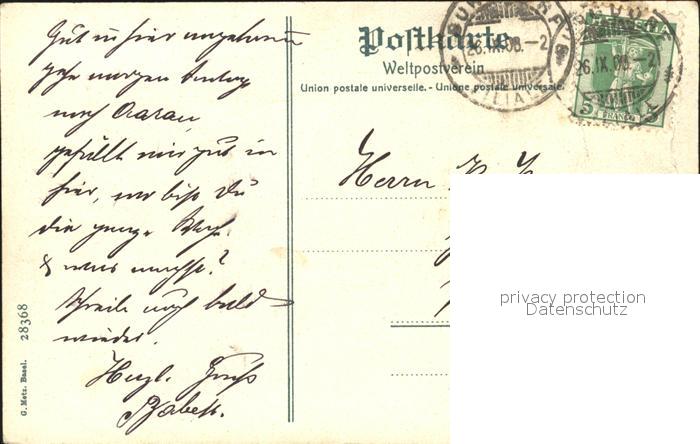 Gut in hier angekommen
gehe morgen
nach Aarau,
gefällt mir gut in
hier, wo bist Du
die ganze Woche
& was machst?
Schreibe noch bald
wieder.
Herzl. Gruß
Babett.
28368
G. Metz. Basel.
Postkarte
Weltpostverein
Union postale universelle. - Unione postale universale.
26.IX.08.-2
26.IX.08.-2
HELVETIA
5
FRANCO
Herrn
privacy protection
Datenschutz